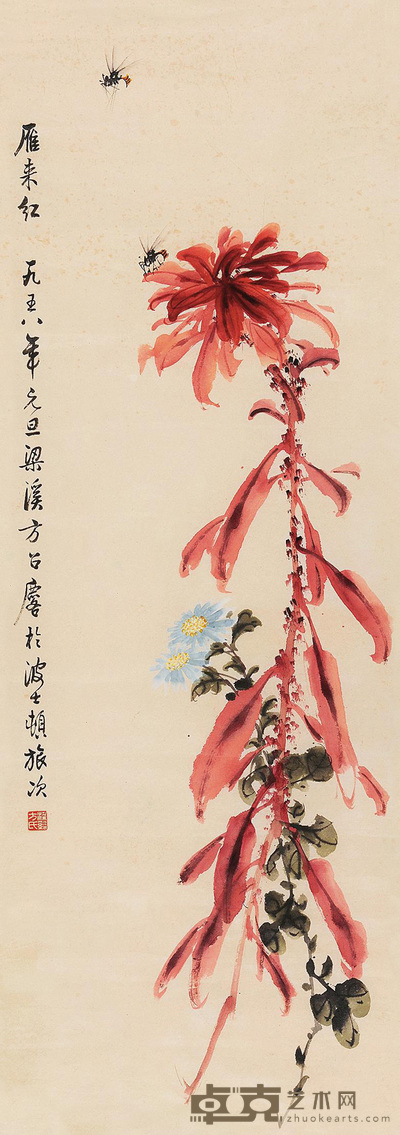 雁来红 一九五八年元旦梁溪方召麐於波士顿旅次
卓克艺术网
zhuokearts.com